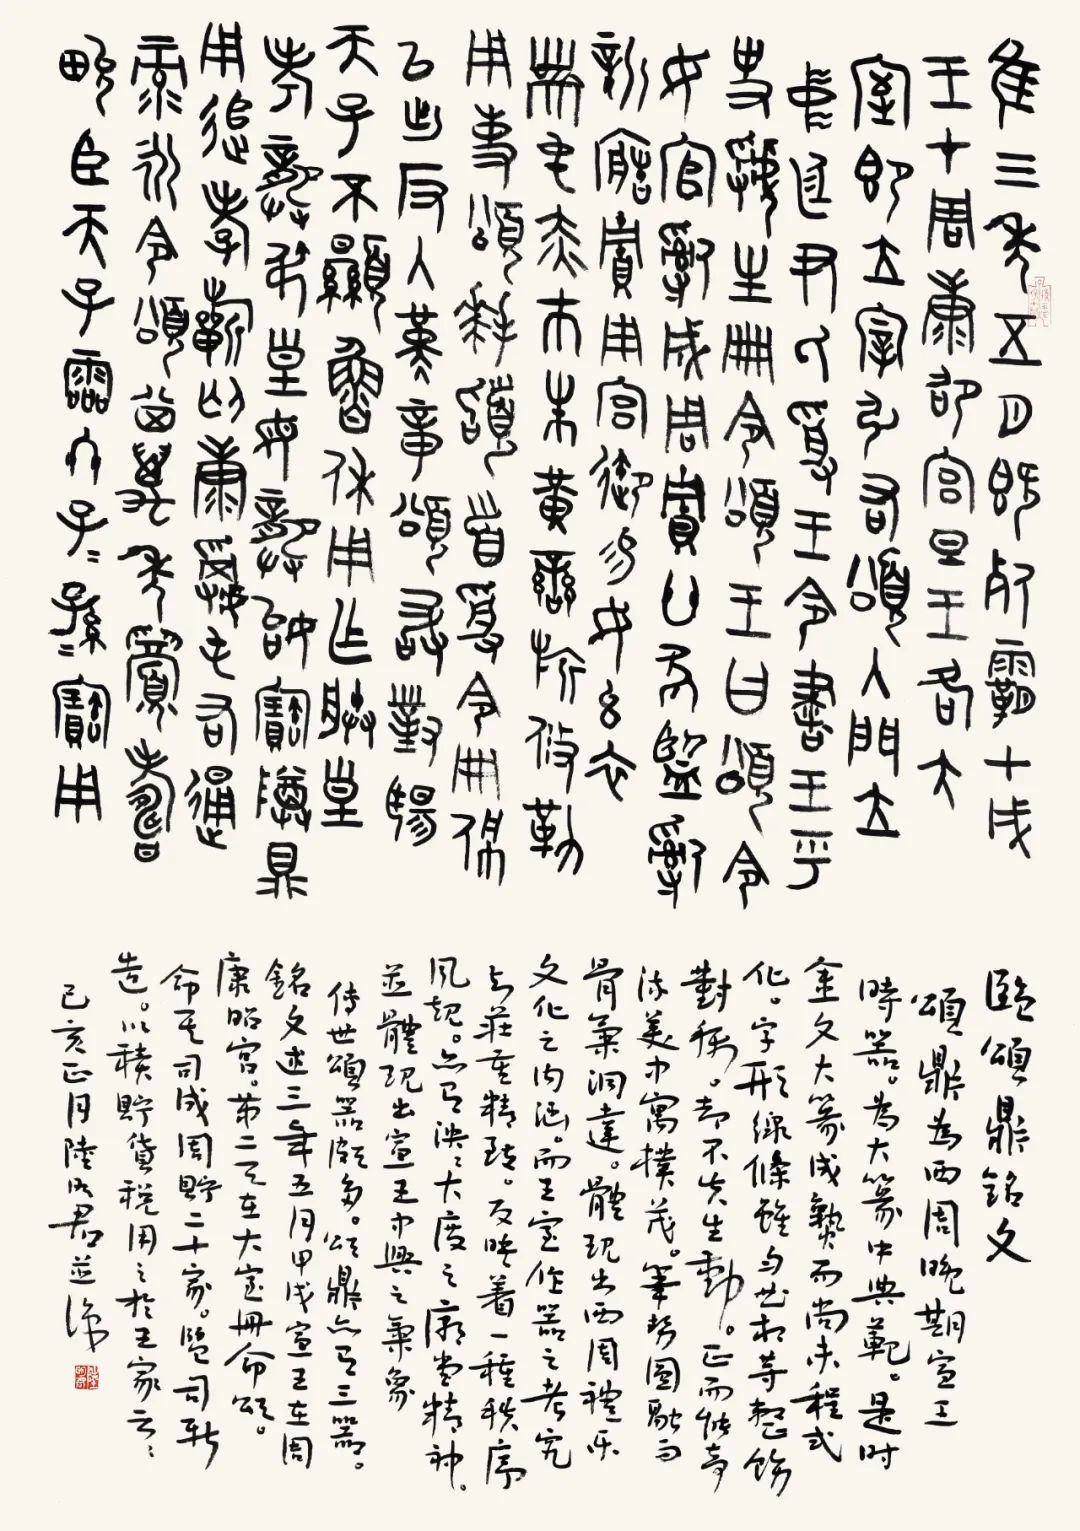 隹三年五月既死霸甲戌
王才周康卲宮旦王各大
室即立宰引右頌入門立
中廷尹氏受王令書王乎
史虢生冊令頌王曰頌令
女官𤔲成周貯廿家監𤔲
新造貯用宮御易女玄衣
黹屯赤巿朱黃鑾旂攸勒
用事頌拜𩒨首受令冊佩
以出反入堇章頌敢對揚
天子不顯魯休用乍朕皇
考龏弔皇母龏姒寶尊鼎
用追孝祈匄康𩁹屯右通
彔永令頌其萬年眉壽
畯臣天子霝冬子=孫=寶用
臨頌鼎銘文
頌鼎為西周晚期宣王
時器。為大篆中典範。是時
金文大篆成熟而尚未程式
化。字形線條雖勻相等整飭
對稱。却不失生動。正而能奇
流美中寓樸茂。筆勢圓融而
骨氣洞達。體現出西周禮樂
文化之內涵。而王室作器之考究
與莊重精致。反映着一種秩序
風規。亦有泱泱大度之廟堂精神。
並體現出宣王中興之氣象
傳世頌器頗多。頌鼎亦有三器。
銘文述三年五月甲戌宣王在周
康昭宮。第二天在大室冊命頌。
命其司成周貯二十家。監司新
造。以積貯貨税用之於王家云云
己亥正月陸明君並識